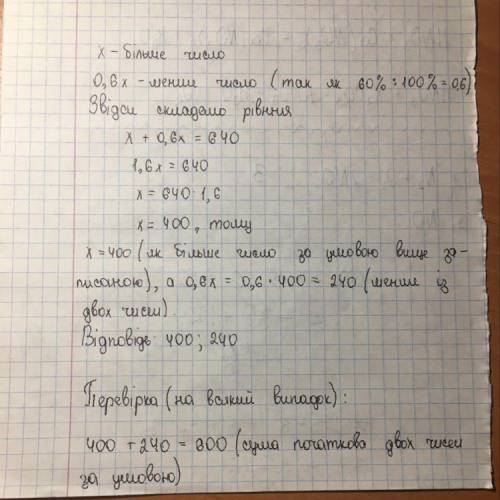 x - більше число
0,6x - менше число (так як 60% : 100% = 0,6)
Звідси складемо рівняння
x + 0,6x = 640
1,6x = 640
x = 640 : 1,6
x = 400, тому
x = 400 (як більше число за умовою вище за-
писаною), а 0,6x = 0,6 · 400 = 240 (менше із
двох чисел)
Відповідь: 400; 240
Перевірка (на всякий випадок):
400 + 240 = 600 (сума початкова двох чисел
за умовою)